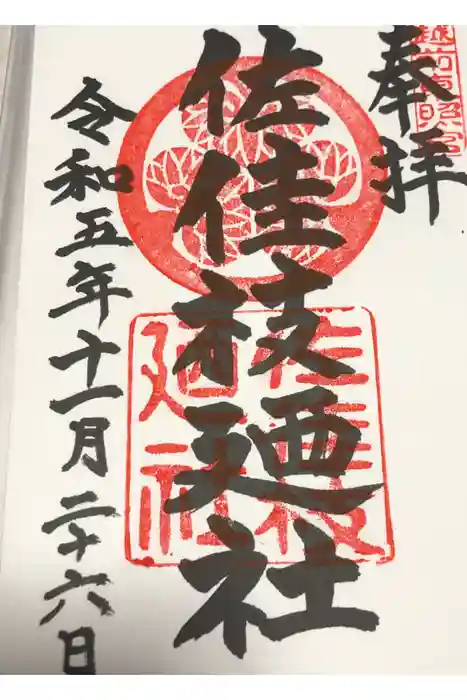 奉拝
越前東照宮
佐佳枝廼社
佐佳枝廼社
令和五年十一月二十六日